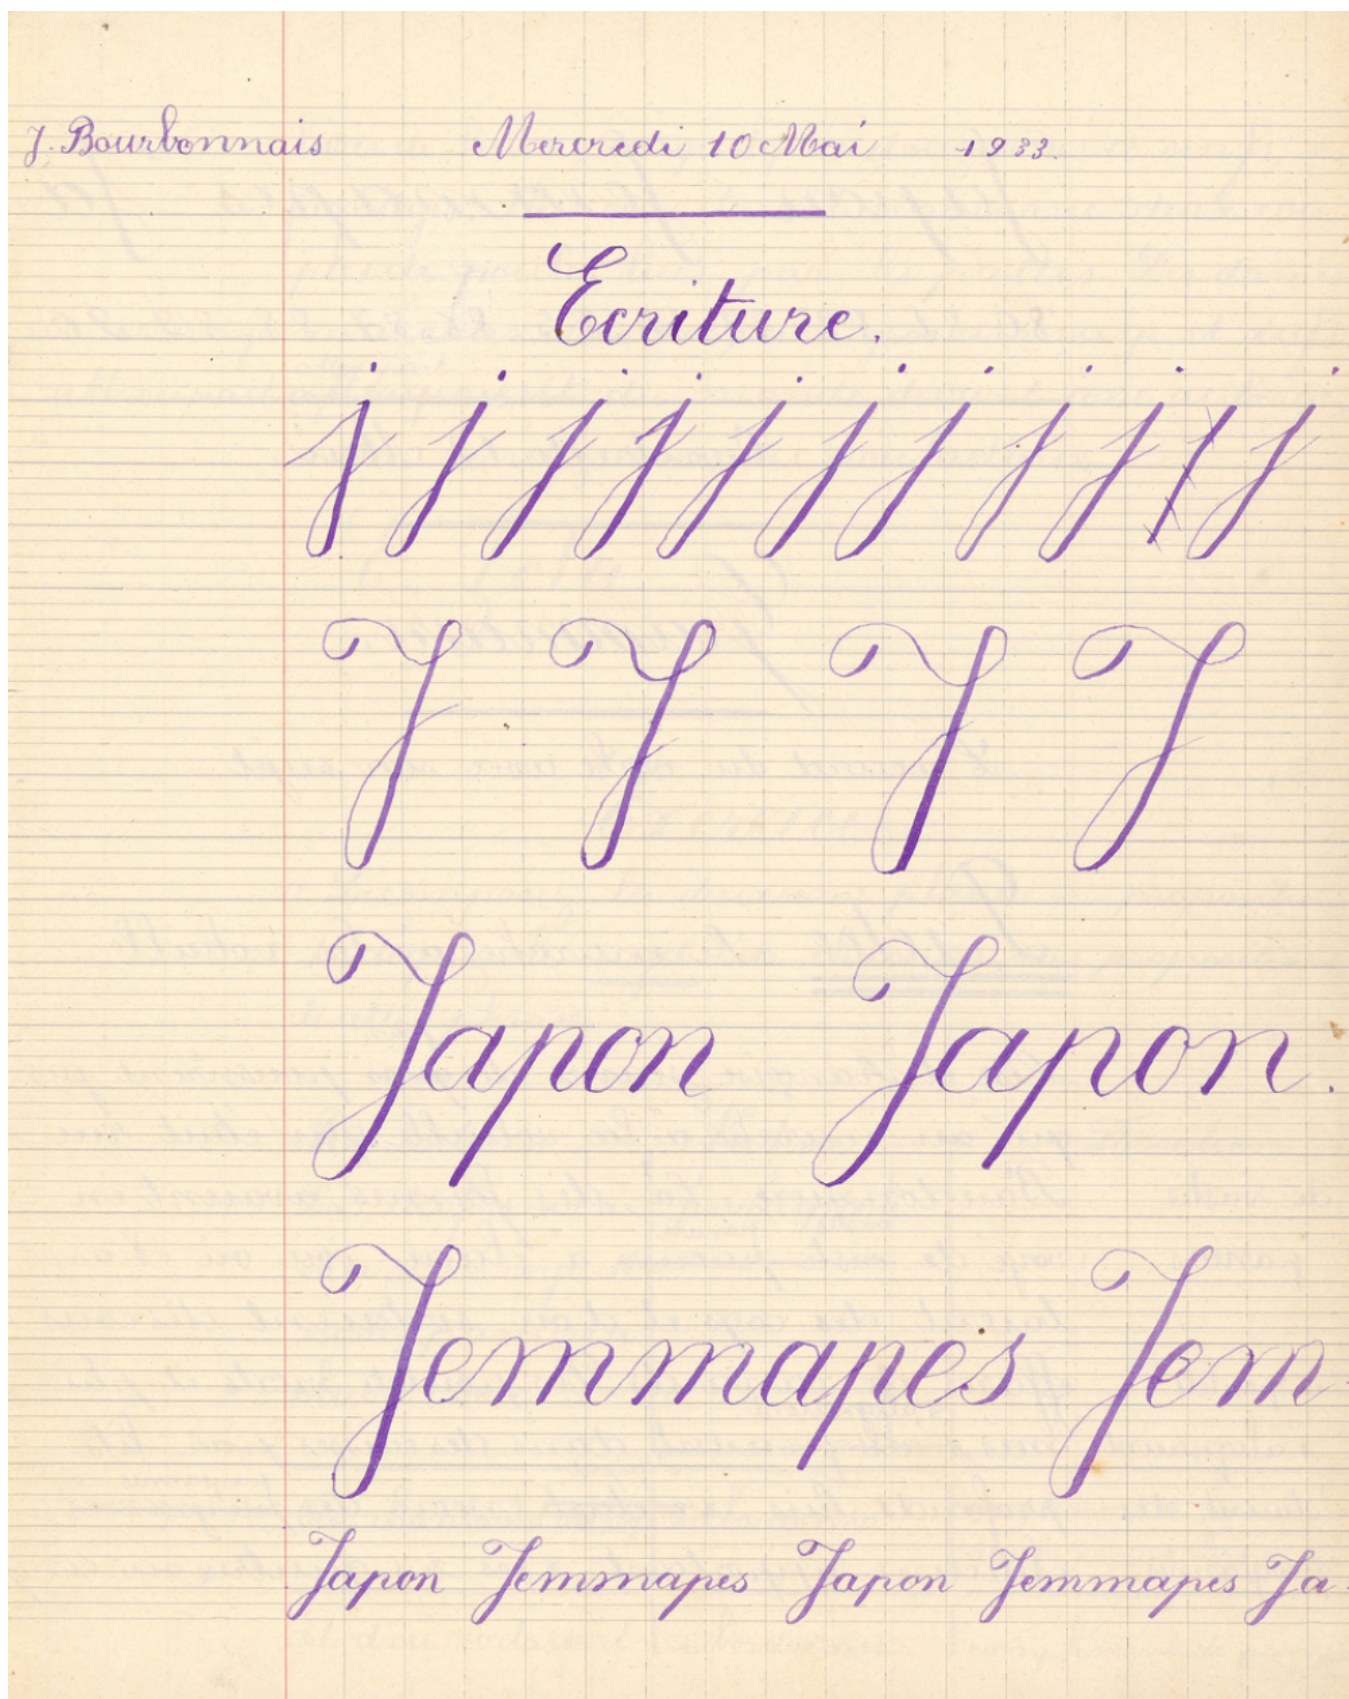 J. Bourbonnais Mercredi 10 Mai 1933.
Ecriture.
j j j j j j j j j j j
J J J J
Japon Japon.
Jemmapes Jem
Japon Jemmapes Japon Jemmapes Ja